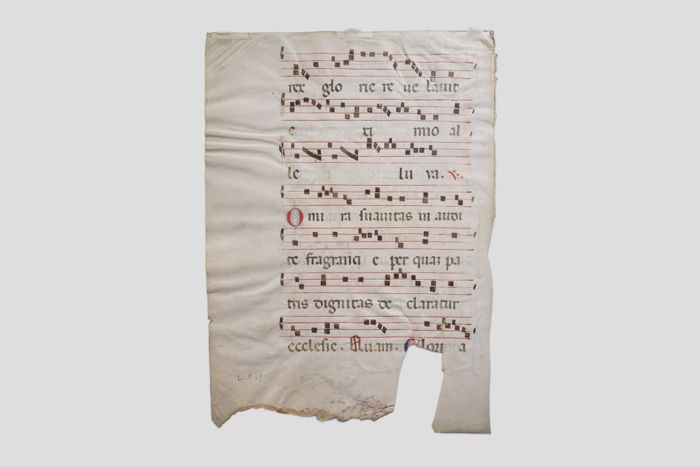 rex glo rie re ue lauit
e xi mio al
le lu ya. ℣.
O mi ra suauitas in audi
te fragranci e per quaz pa
tris dignitas de claratur
ecclesie. Quam. Glori a